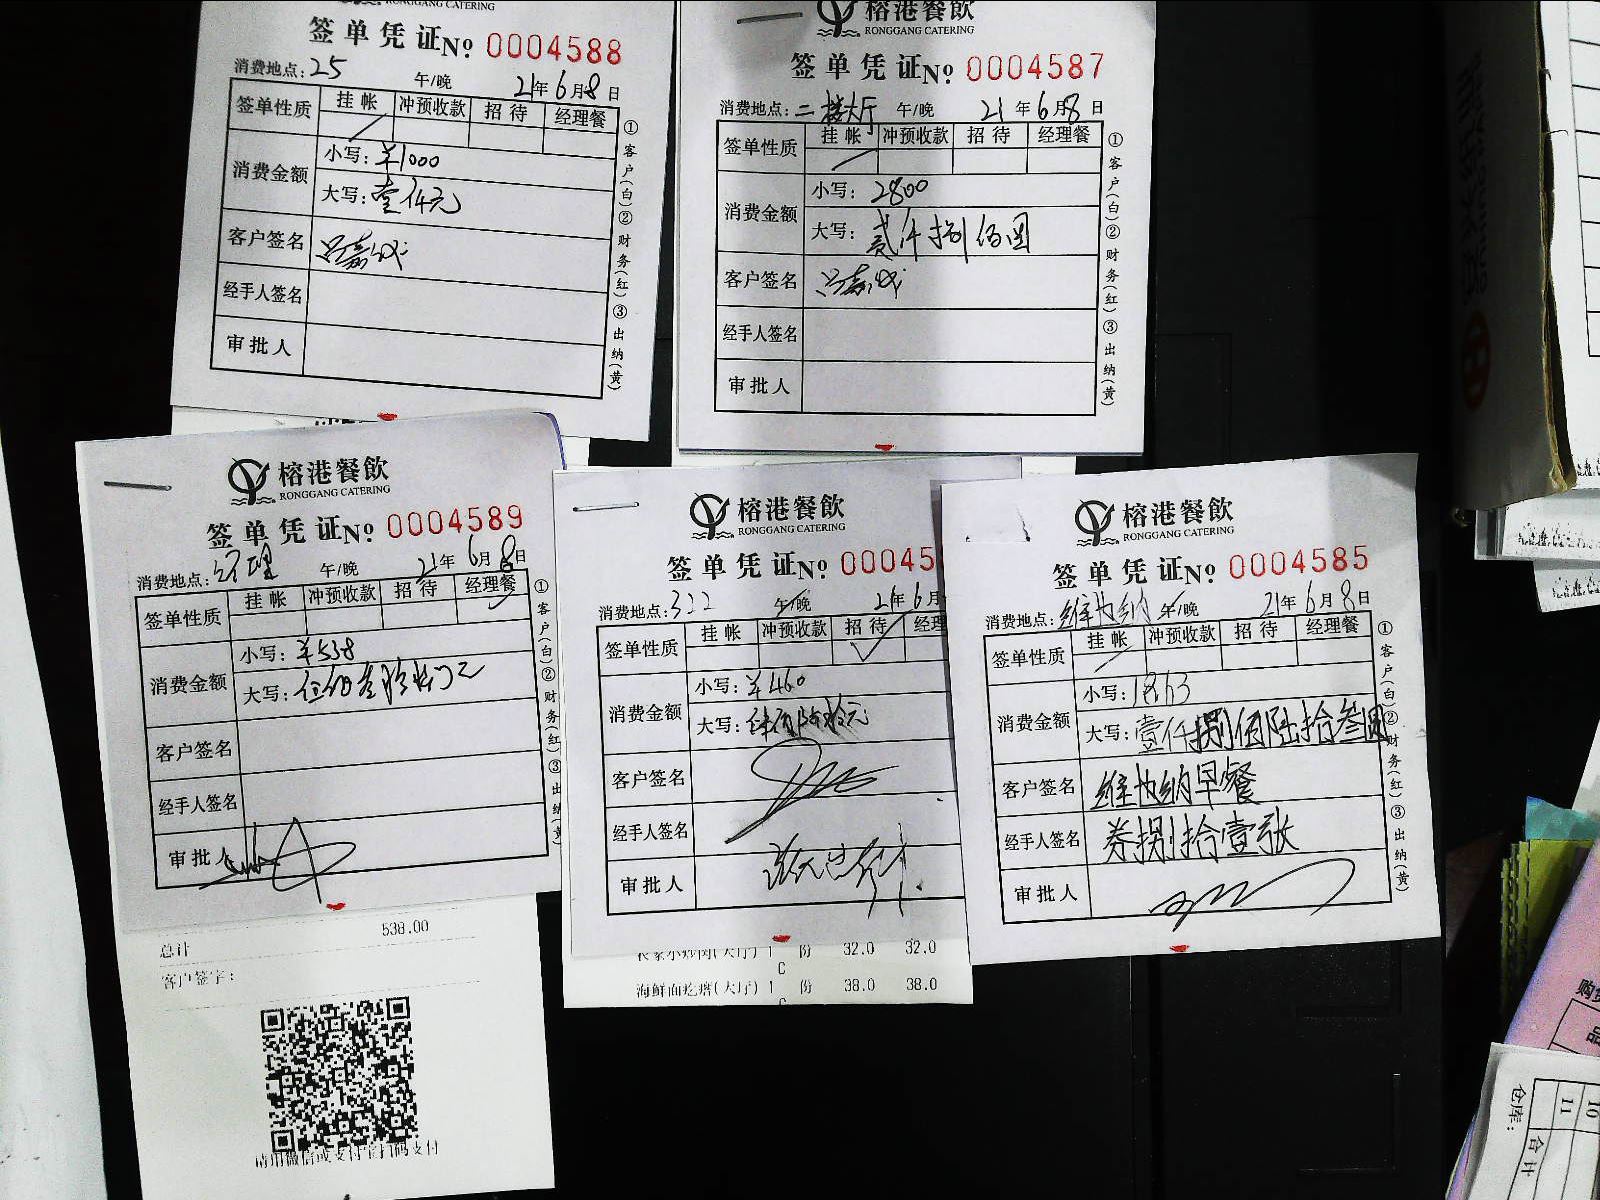 RONGGANG CATERING
签单凭证 No 0004588
消费地点：25 午/晚 21年6月8日
签单性质 挂帐 冲预收款 招待 经理餐
消费金额 小写：¥1000
大写：壹仟元
客户签名
经手人签名
审批人
①客户(白)②财务(红)③出纳(黄)
榕港餐飲
RONGGANG CATERING
签单凭证 No 0004587
消费地点：二楼大厅 午/晚 21年6月8日
签单性质 挂帐 冲预收款 招待 经理餐
消费金额 小写：2800
大写：贰仟捌佰圆
客户签名
经手人签名
审批人
①客户(白)②财务(红)③出纳(黄)
榕港餐飲
RONGGANG CATERING
签单凭证 No 0004589
消费地点：经理 午/晚 21年6月8日
签单性质 挂帐 冲预收款 招待 经理餐
消费金额 小写：¥538
大写：伍佰叁拾捌元
客户签名
经手人签名
审批人
①客户(白)②财务(红)③出纳(黄)
总计 538.00
客户签字：
请用微信或支付宝扫码支付
榕港餐飲
RONGGANG CATERING
签单凭证 No 00045
消费地点：322 午/晚 21年6月
签单性质 挂帐 冲预收款 招待 经理
消费金额 小写：¥460
大写：肆佰陆拾元
客户签名
经手人签名
审批人
农家小炒肉(大厅) 1 份 32.0 32.0
C
海鲜面疙瘩(大厅) 1 份 38.0 38.0
C
榕港餐飲
RONGGANG CATERING
签单凭证 No 0004585
消费地点：维也纳 午/晚 21年6月8日
签单性质 挂帐 冲预收款 招待 经理餐
消费金额 小写：1863
大写：壹仟捌佰陆拾叁圆
客户签名 维也纳早餐
经手人签名 券捌拾壹张
审批人
①客户(白)②财务(红)③出纳(黄)
购货
品
仓库：
10
11
合计